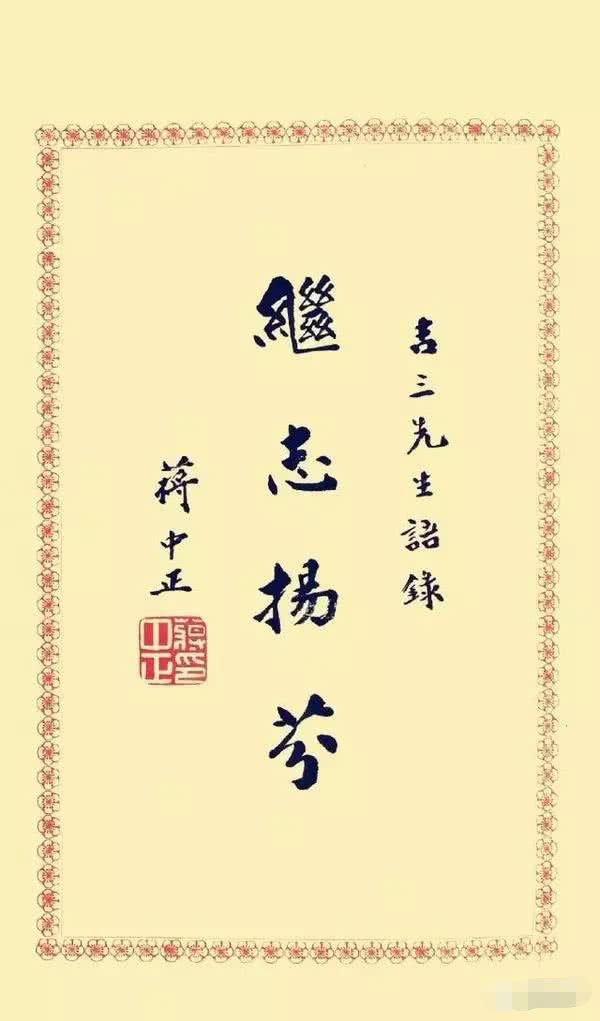 吉三先生語錄
繼志揚芬
蔣中正
蔣中正印